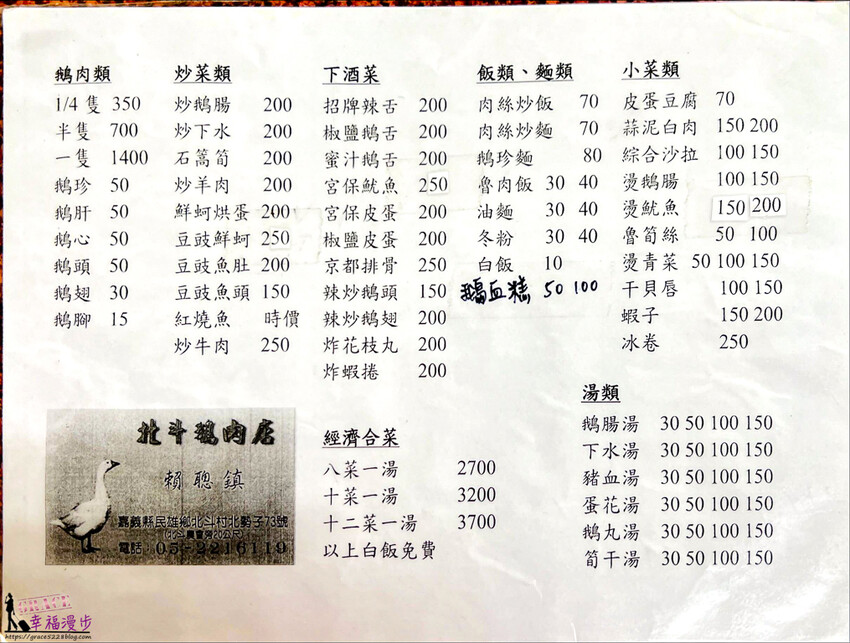 鵝肉類
1/4 隻 350
半隻 700
一隻 1400
鵝珍 50
鵝肝 50
鵝心 50
鵝頭 50
鵝翅 30
鵝腳 15
炒菜類
炒鵝腸 200
炒下水 200
石篙筍 200
炒羊肉 200
鮮蚵烘蛋 200
豆豉鮮蚵 250
豆豉魚肚 200
豆豉魚頭 150
紅燒魚 時價
炒牛肉 250
下酒菜
招牌辣舌 200
椒鹽鵝舌 200
蜜汁鵝舌 200
宮保魷魚 250
宮保皮蛋 200
椒鹽皮蛋 200
京都排骨 250
辣炒鵝頭 150
辣炒鵝翅 200
炸花枝丸 200
炸蝦捲 200
飯類、麵類
肉絲炒飯 70
肉絲炒麵 70
鵝珍麵 80
魯肉飯 30 40
油麵 30 40
冬粉 30 40
白飯 10
鵝血糕 50 100
小菜類
皮蛋豆腐 70
蒜泥白肉 150 200
綜合沙拉 100 150
燙鵝腸 100 150
燙魷魚 150 200
魯筍絲 50 100
燙青菜 50 100 150
干貝唇 100 150
蝦子 150 200
冰卷 250
湯類
鵝腸湯 30 50 100 150
下水湯 30 50 100 150
豬血湯 30 50 100 150
蛋花湯 30 50 100 150
鵝丸湯 30 50 100 150
筍干湯 30 50 100 150
經濟合菜
八菜一湯 2700
十菜一湯 3200
十二菜一湯 3700
以上白飯免費
北斗鵝肉店
賴聰鎮
嘉義縣民雄鄉北斗村北勢子73號
電話 05-2216119
幸福漫步
https://grace5228blog.com